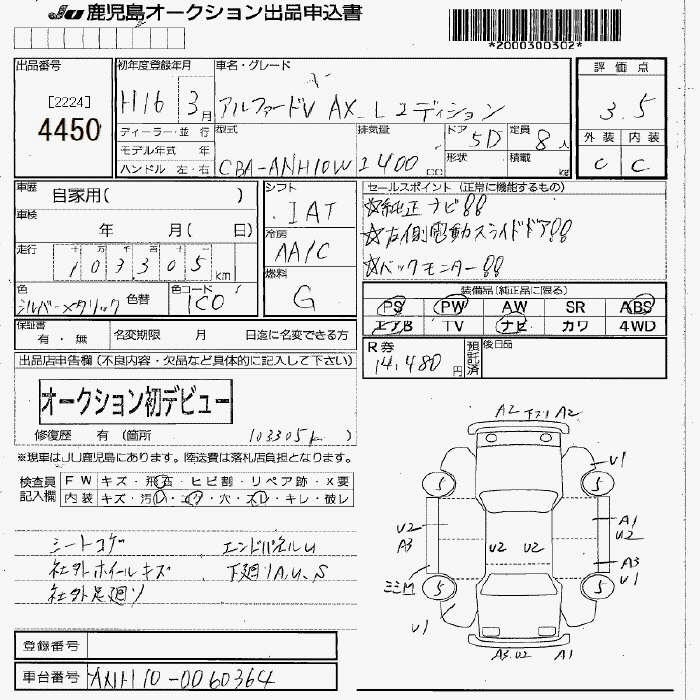 JU 鹿児島オークション出品申込書
*2000300302*
出品番号
[2224]
4450
初年度登録年月
H16 3月
車名・グレード
アルファードV AX_Lエディション
ディーラー・並 行
モデル年式 年
ハンドル 左・右
型式
CBA-ANH10W
排気量
2400 cc
ドア
5D
形状
定員
8人
積載
kg
評価点
3.5
外装 内装
C C
車歴 自家用( )
車検 年 月( 日)
走行 十 万 千 百 十 一
103305 km
色
シルバーメタリック
色替
色コード
1C0
シフト
IAT
冷房
AA/C
燃料
G
セールスポイント (正常に機能するもの)
☆純正ナビ!!
☆左側電動スライドドア!!
☆バックモニター!!
装備品(純正品に限る)
PS PW AW SR ABS
エアB TV ナビ カワ 4WD
保証書 有・無
名変期限 月 日迄に名変できる方
R券
14,480円
預託済
後日品
出品店申告欄(不良内容・欠品など具体的に記入して下さい)
オークション初デビュー
修復歴 有 (箇所 103305k )
※現車はJU鹿児島にあります。陸送費は落札店負担となります。
検査員記入欄
FW キズ・飛石・ヒビ割・リペア跡・X要
内装 キズ・汚レ・コゲ・穴・スレ・キレ・破レ
シートコゲ エンドパネルU
社外ホイールキズ 下廻りA.U.S
社外足廻り
登録番号
車台番号 ANH10-0060364
A2 下スリ A2
U1
5 5
U2 A1
A3 U2 U2 U2
A3
ミミM U1
5 5
U1
A3.U2 A1